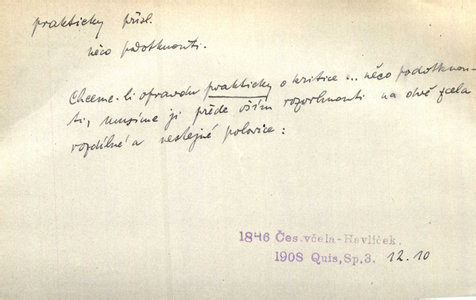 prakticky přísl.
něco podotknouti.
Chceme-li opravdu prakticky o kritice ... něco podotknou-
ti, musíme ji přede vším rozvrhnouti na dvě zcela
rozdílné a nestejné polovice:
1846 Čes.včela-Havlíček.
1908 Quis,Sp.3. 12.10